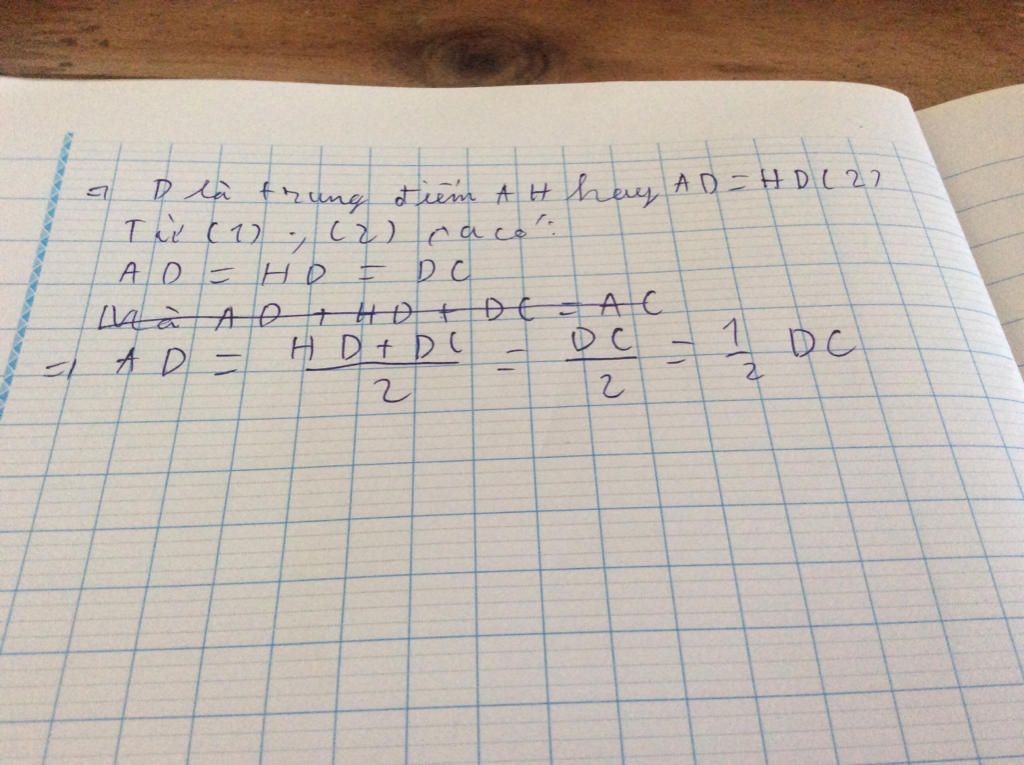 => D là trung điểm AH hay AD = HD (2)
Từ (1), (2) ta có:
AD = HD = DC
Mà AD + HD + DC = AC
=> AD = HD + DC / 2 = DC / 2 = 1/2 DC